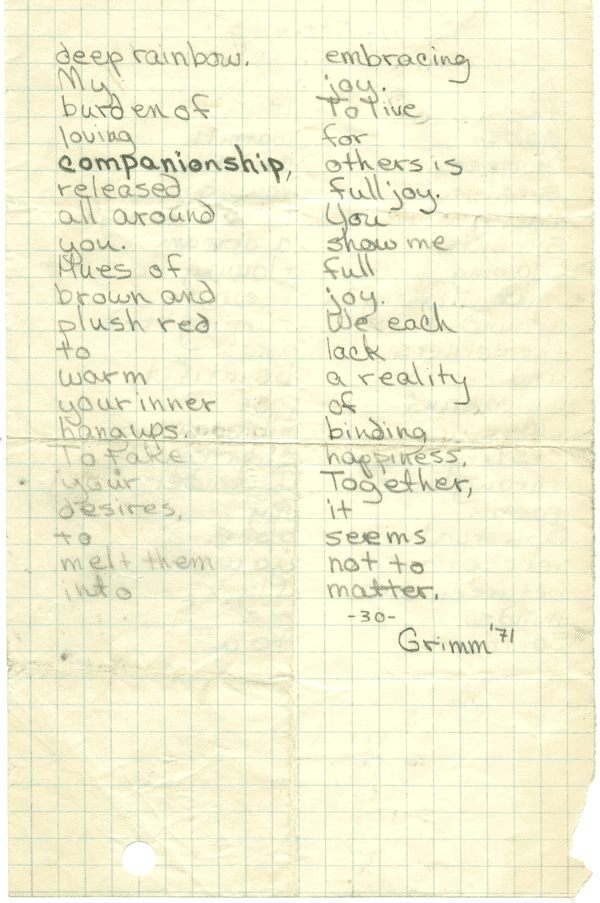 deep rainbow.
My
burden of
loving
companionship,
released
all around
you.
Hues of
brown and
plush red
to
warm
your inner
hangups.
To take
your
desires,
to
melt them
into
embracing
joy.
To live
for
others is
full joy.
You
show me
full
joy.
We each
lack
a reality
of
binding
happiness.
Together,
it
seems
not to
matter.
-30-
Grimm '71